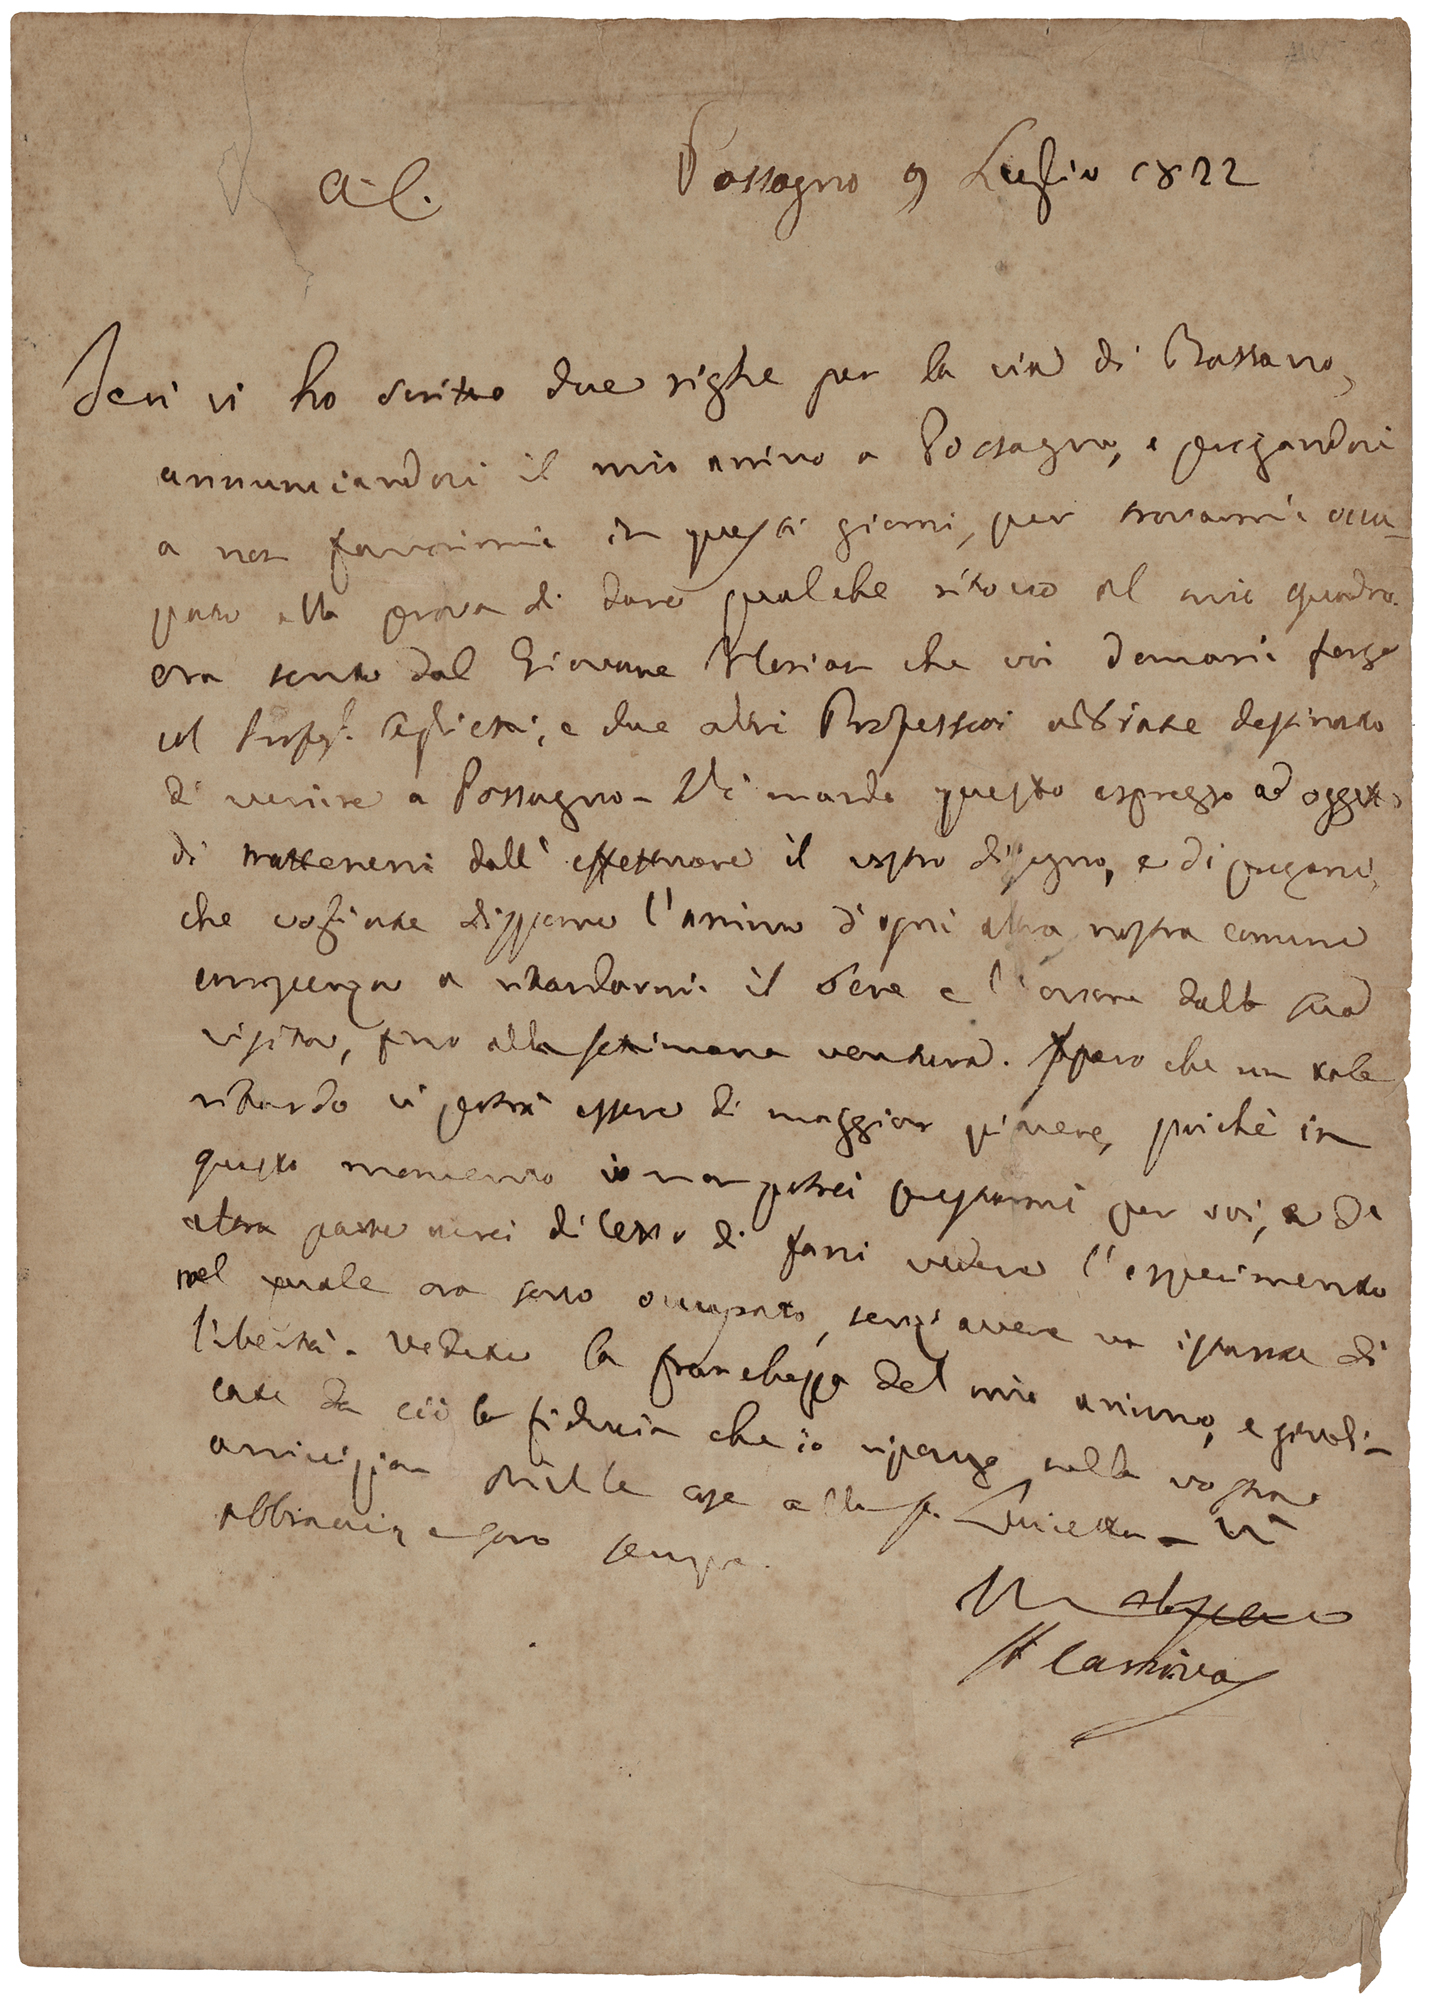 A. C.
Possagno 9 Luglio 1822
Jeri vi ho scritto due righe per la via di Bassano,
annunciandovi il mio arrivo a Possagno, e pregandovi
a non favorirmi in questi giorni, per trovarmi occu-
pato alla prova di dare qualche ritocco al mio quadro.
Ora sento dal Giovane che voi domani forse
col Profes. Aglietti, e due altri Professori abbiate destinato
di venire a Possagno - Vi mando questo espresso ad oggetto
di trattenervi dall' effettuare il vostro disegno, e di pregarvi,
che vogliate disporre l'animo d'ogni altra vostra comune
a ritardarmi il bene e l'onore dalla sua
visita, fino alla settimana ventura. Spero che un tale
ritardo vi potrà essere di maggior piacere, poichè in
questo momento io non potrei prestarmi per voi, e da
altra parte avrei diletto di farvi vedere l'esperimento
nel quale ora sono occupato, senz'avere un istante di
libertà - Vedete la franchezza del mio animo, e giudi-
cate da ciò la fiducia che io ripongo nella vostra
amicizia Mille cose alla S. Lucietta - Vi
abbraccio, e sono sempre.
Canova